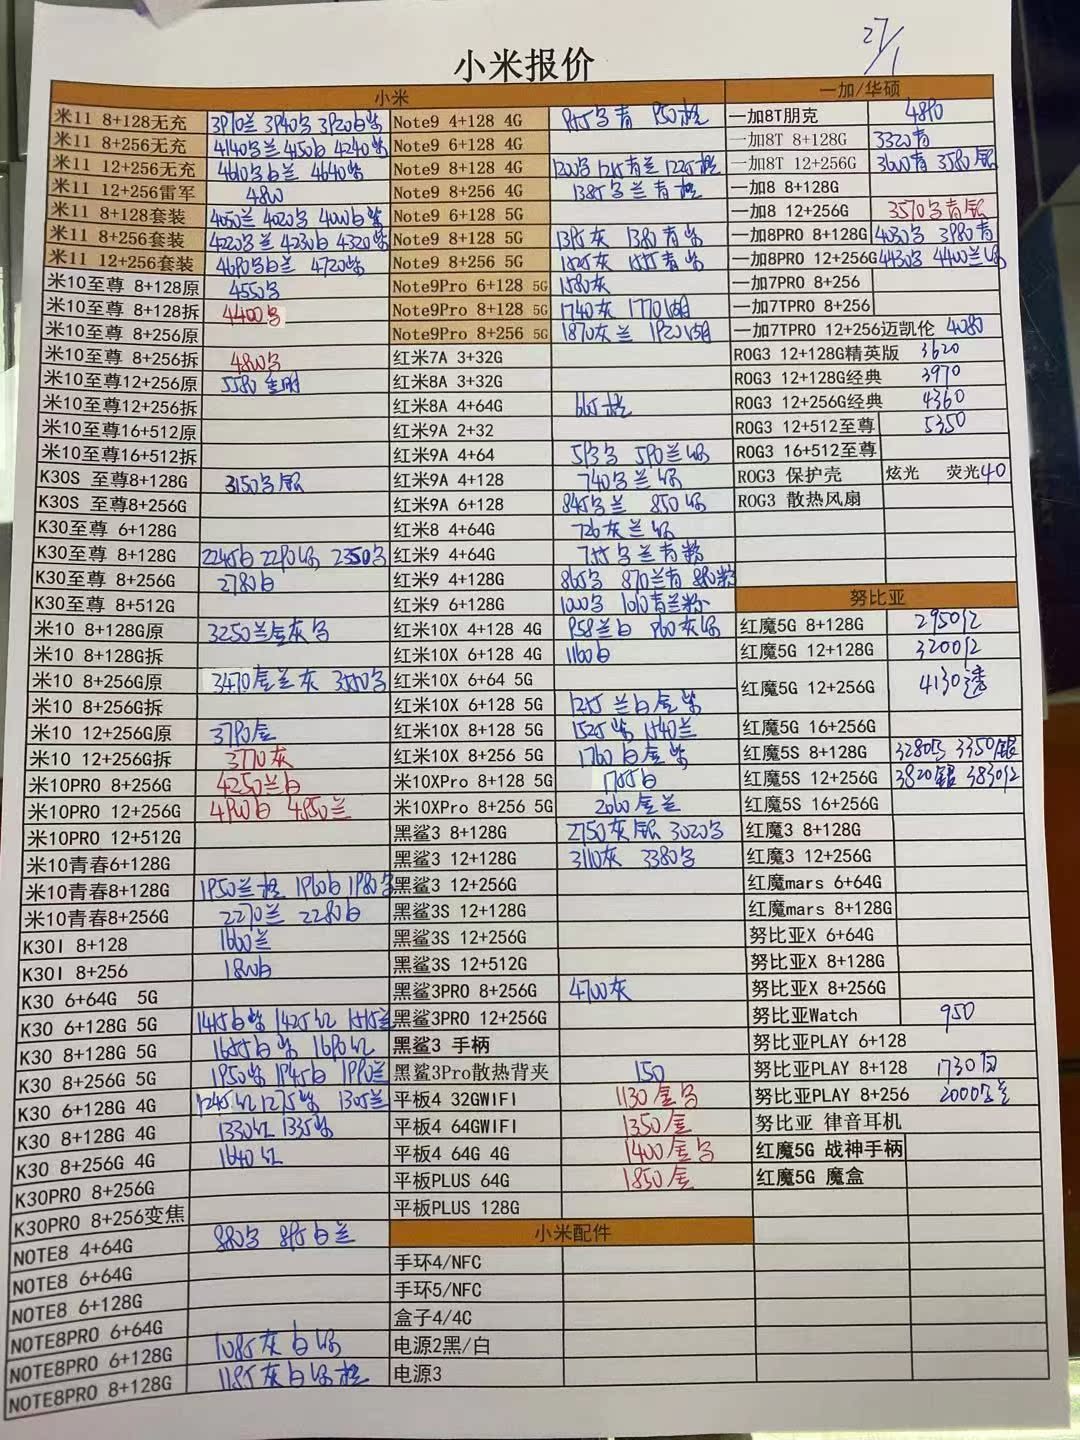 27/1
小米报价
小米
米11 8+128无充 3910兰 3940乌 3920白紫
米11 8+256无充 4140乌兰 4150白 4240紫
米11 12+256无充 4610乌白兰 4640紫
米11 12+256雷军 4800
米11 8+128套装 4050兰 4020乌 4000白紫
米11 8+256套装 4220乌兰 4230白 4320紫
米11 12+256套装 4690乌白兰 4720紫
米10至尊 8+128原 4550乌
米10至尊 8+128拆 4400乌
米10至尊 8+256原
米10至尊 8+256拆 4800乌
米10至尊12+256原 5580透明
米10至尊12+256拆
米10至尊16+512原
米10至尊16+512拆
K30S 至尊8+128G 3150乌银
K30S 至尊8+256G
K30至尊 6+128G
K30至尊 8+128G 2245白 2290绿 2350乌
K30至尊 8+256G 2780白
K30至尊 8+512G
米10 8+128G原 3250兰金灰乌
米10 8+128G拆
米10 8+256G原 3470金兰灰 3550乌
米10 8+256G拆
米10 12+256G原 3790金
米10 12+256G拆 3770灰
米10PRO 8+256G 4250兰白
米10PRO 12+256G 4190白 4850兰
米10PRO 12+512G
米10青春6+128G
米10青春8+128G 1950兰桃 1960白 1980乌
米10青春8+256G 2270兰 2280白
K30I 8+128 1660兰
K30I 8+256 1800白
K30 6+64G 5G
K30 6+128G 5G 1415白紫 1425红 1515兰
K30 8+128G 5G 1655白紫 1690红
K30 8+256G 5G 1950紫 1945白 1990兰
K30 6+128G 4G 1245红 1275紫 1305兰
K30 8+128G 4G 1330红 1335紫
K30 8+256G 4G 1640红
K30PRO 8+256G
K30PRO 8+256变焦
NOTE8 4+64G 880乌 895白兰
NOTE8 6+64G
NOTE8 6+128G
NOTE8PRO 6+64G
NOTE8PRO 6+128G 1085灰白绿
NOTE8PRO 8+128G 1185灰白绿桃
Note9 4+128 4G 955乌青 950桃
Note9 6+128 4G
Note9 8+128 4G 1200乌 1215青兰 1225桃
Note9 8+256 4G 1385乌兰青桃
Note9 6+128 5G
Note9 8+128 5G 1395灰 1380青紫
Note9 8+256 5G 1525灰 1555青紫
Note9Pro 6+128 5G 1580灰
Note9Pro 8+128 5G 1740灰 1770
Note9Pro 8+256 5G 1870灰兰 1920
红米7A 3+32G
红米8A 3+32G
红米8A 4+64G 665桃
红米9A 2+32
红米9A 4+64 593乌 590兰绿
红米9A 4+128 740乌兰绿
红米9A 6+128 845乌兰 850绿
红米8 4+64G 726灰兰绿
红米9 4+64G 755乌兰青粉
红米9 4+128G 865乌 870兰青 880粉
红米9 6+128G 1000乌 1010青兰粉
红米10X 4+128 4G 958兰白 960灰绿
红米10X 6+128 4G 1160白
红米10X 6+64 5G
红米10X 6+128 5G 1255兰白金紫
红米10X 8+128 5G 1525紫 1540兰
红米10X 8+256 5G 1760白金紫
米10XPro 8+128 5G 1755白
米10XPro 8+256 5G 2060金兰
黑鲨3 8+128G 2750灰银 3020乌
黑鲨3 12+128G 3110灰 3380乌
黑鲨3 12+256G
黑鲨3S 12+128G
黑鲨3S 12+256G
黑鲨3S 12+512G
黑鲨3PRO 8+256G 4700灰
黑鲨3PRO 12+256G
黑鲨3 手柄
黑鲨3Pro散热背夹 150
平板4 32GWIFI 1130金乌
平板4 64GWIFI 1350金
平板4 64G 4G 1400金乌
平板PLUS 64G 1850金
平板PLUS 128G
小米配件
手环4/NFC
手环5/NFC
盒子4/4C
电源2黑/白
电源3
一加/华硕
一加8T朋克 4890
一加8T 8+128G 3320青
一加8T 12+256G 3600青 3580银
一加8 8+128G
一加8 12+256G 3570乌青银
一加8PRO 8+128G 4030乌 3980青
一加8PRO 12+256G 4430乌 4400兰绿
一加7PRO 8+256
一加7TPRO 8+256
一加7TPRO 12+256迈凯伦 4080
ROG3 12+128G精英版 3620
ROG3 12+128G经典 3970
ROG3 12+256G经典 4360
ROG3 12+512至尊 5350
ROG3 16+512至尊
ROG3 保护壳 炫光 荧光40
ROG3 散热风扇
努比亚
红魔5G 8+128G 2950红
红魔5G 12+128G 3200红
红魔5G 12+256G 4130透
红魔5G 16+256G
红魔5S 8+128G 3280乌 3350银
红魔5S 12+256G 3820银 3830红
红魔5S 16+256G
红魔3 8+128G
红魔3 12+256G
红魔mars 6+64G
红魔mars 8+128G
努比亚X 6+64G
努比亚X 8+128G
努比亚X 8+256G
努比亚Watch 950
努比亚PLAY 6+128
努比亚PLAY 8+128 1730白
努比亚PLAY 8+256 2000乌兰
努比亚 律音耳机
红魔5G 战神手柄
红魔5G 魔盒